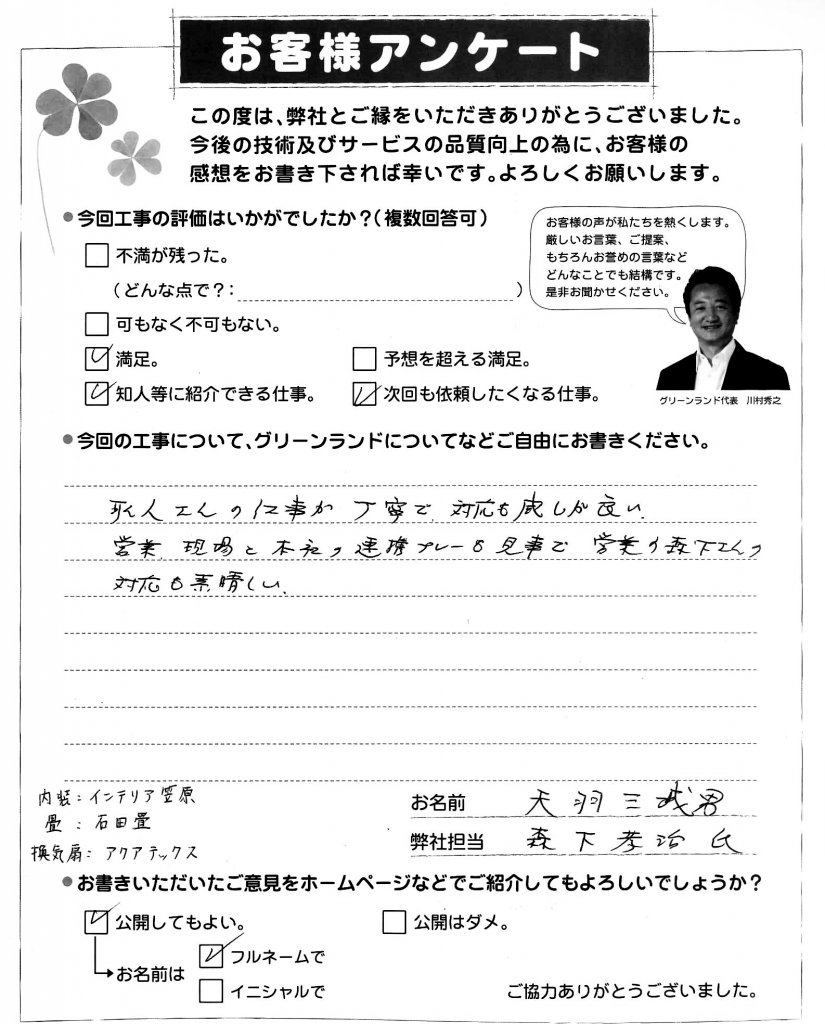 お客様アンケート
この度は、弊社とご縁をいただきありがとうございました。
今後の技術及びサービスの品質向上の為に、お客様の
感想をお書き下されば幸いです。よろしくお願いします。
●今回工事の評価はいかがでしたか？（複数回答可）
不満が残った。
（どんな点で？：　）
可もなく不可もない。
満足。
予想を超える満足。
知人等に紹介できる仕事。
次回も依頼したくなる仕事。
お客様の声が私たちを熱くします。
厳しいお言葉、ご提案、
もちろんお誉めの言葉など
どんなことでも結構です。
是非お聞かせください。
グリーンランド代表　川村秀之
●今回の工事について、グリーンランドについてなどご自由にお書きください。
職人さんの仕事が丁寧で、対応も感じが良い、
営業、現場と本社の連携プレーも見事で 営業の森下さんの
対応も素晴しい、
内装：インテリア笠原
畳：石田畳
換気扇：アクアテックス
お名前　天羽三哉男
弊社担当　森下孝治氏
●お書きいただいたご意見をホームページなどでご紹介してもよろしいでしょうか？
公開してもよい。
公開はダメ。
お名前は
フルネームで
イニシャルで
ご協力ありがとうございました。